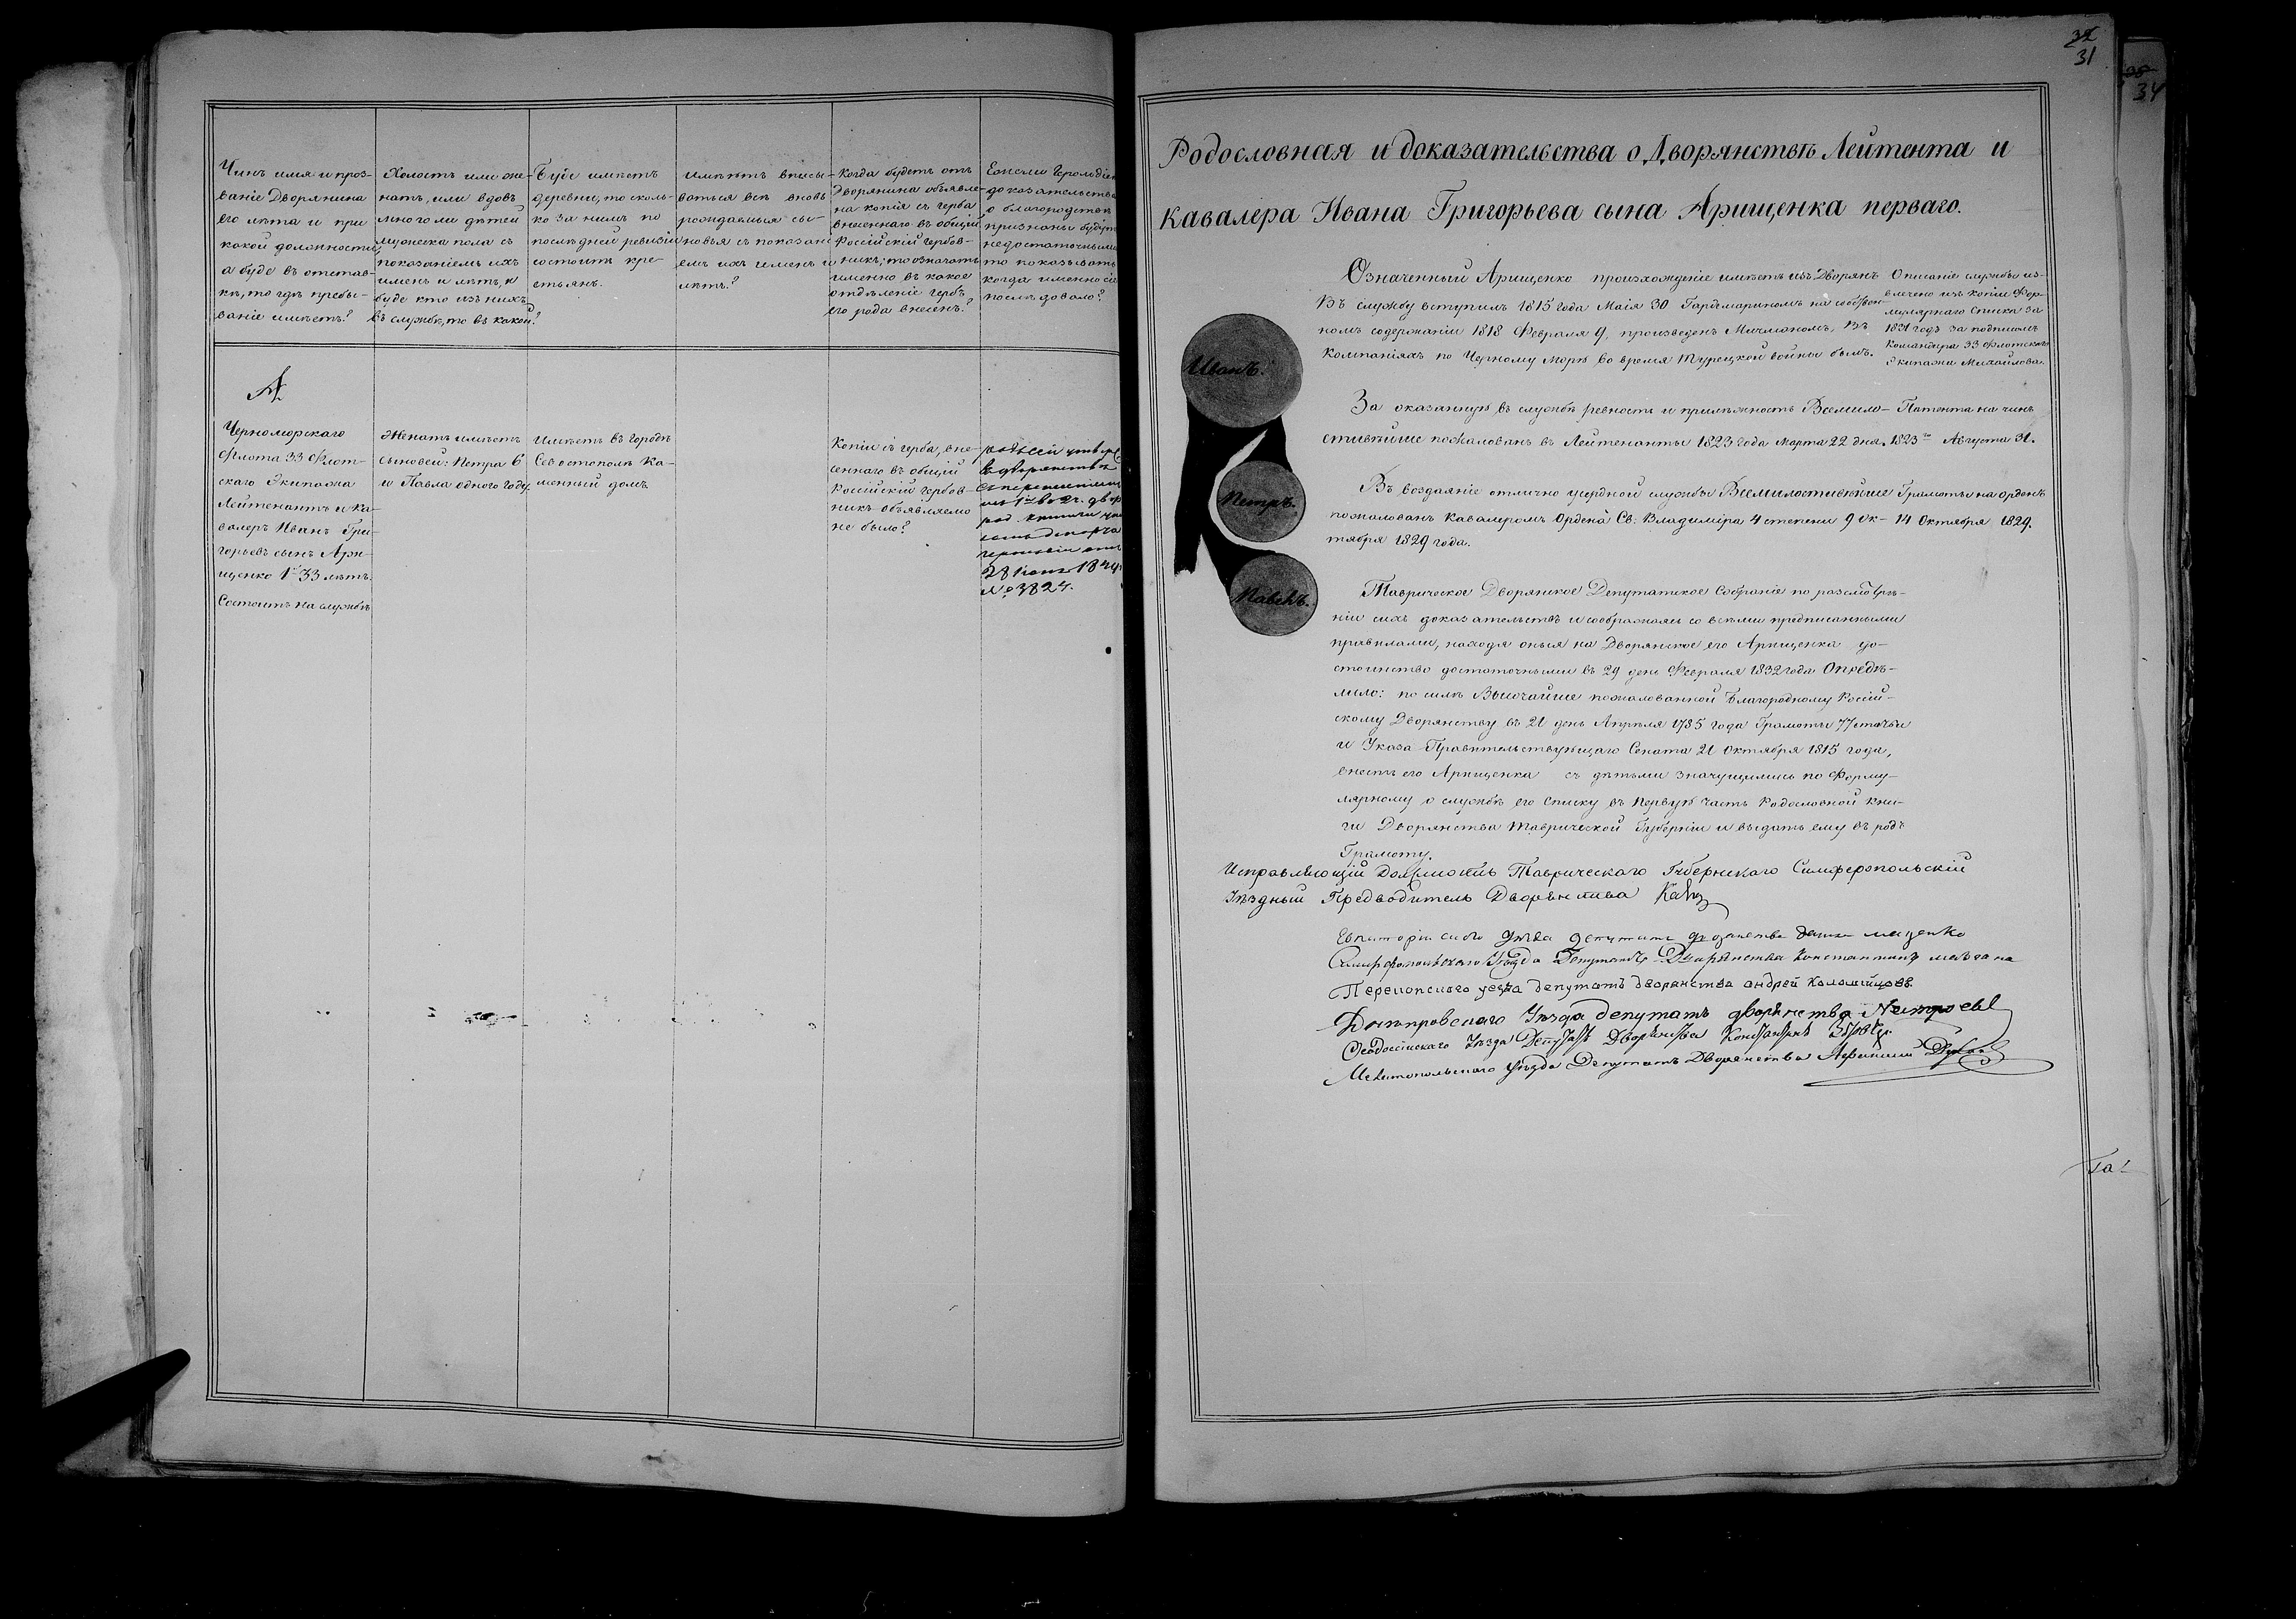 Чинъ имя и проз-
ваніе Дворянина
его лѣта и при
какой должности,
а буде въ отстав-
кѣ, то гдѣ пребы-
ваніе имѣетъ?
Холостъ или же-
натъ, или вдовъ
многоли дѣтей
мужеска пола съ
показаніемъ ихъ
именъ и лѣтъ, и
буде кто изъ нихъ
въ службѣ, то въ какой?
Буде имѣетъ
деревни, то сколь-
ко за нимъ по
послѣдней ревизіи
состоитъ кре-
стьянъ.
Имѣютъ вписы-
ваться всѣ вновь
рождаемыя сы-
новья съ показані
емъ ихъ именъ и
лѣтъ?
Когда будетъ отъ
Дворянина объявле-
на копія съ герба
внесеннаго въ общій
Россійскій гербов-
никъ; то означать
именно въ какое
отдѣленіе гербъ
его рода внесенъ?
Ежели Герольдіею
доказательства
о благородствѣ
признаны будутъ
недостаточными
то показывать
когда именно сіе
послѣдовало?
А.
Черноморскаго
Флота 33 Флот-
скаго Экипажа
Лейтенантъ и Ка-
валеръ Иванъ Гри-
горьевъ сынъ Ари-
щенко 1й 33 лѣтъ.
Состоитъ на службѣ
Женатъ имѣетъ
сыновей: Петра 6
и Павла одного году.
Имѣетъ въ городѣ
Севостополѣ ка-
менный домъ
Копіи съ герба, вне-
сеннаго въ общій
Россійскій гербов-
никъ объявляемо
не было?
родъ сей утверж
въ дворянствѣ
съ перенесеніем
изъ 1й во 2 ч. двор
род. книги
28 1844
№ 3824.
32
31
34
Родословная и доказательства о Дворянствѣ Лейтента и
Кавалера Ивана Григорьева сына Арищенка перваго.
Означенный Арищенко происхожденіе имѣетъ изъ Дворянъ
Въ службу вступилъ 1815 года Маія 30 Гардемариномъ на собствен-
номъ содержаніи 1818 Февраля 9, произведенъ Мичманомъ. Въ
Компаніяхъ по Черному Морю во время Турецкой войны былъ.
Описаніе службы из-
влечено изъ копіи Фор-
мулярнаго списка за
1831 годъ за подписомъ
Командира 33 Флотскаго
Экипажа Михайлова.
Иванъ.
За оказанную въ службѣ ревность и прилѣжность Всемило-
стивѣйше пожалованъ въ Лейтенанты 1823 года марта 22 дня.
Патента на чинъ
1823го Августа 31.
Петръ.
Въ воздаяніе отлично усердной службы Всемилостивѣйше
пожалованъ Кавалеромъ Ордена Св: Владиміра 4 степени 9 Ок-
тября 1829 года.
Грамоты на орденъ
14 Октября 1829.
Павелъ.
Таврическое Дворянское Депутатское Собраніе по разсмотрѣ-
ніи сихъ доказательствъ и соображаясь со всѣми предписанными
правилами, находя оныя на Дворянское его Арищенка до-
стоинство достаточными въ 29 день Февраля 1832 года Опредѣ-
лило: по силѣ Высочайше пожалованной Благородному Россій-
скому Дворянству въ 21 день Апрѣля 1785 года Грамоты 77 статьи
и Указа Правительствующаго Сената 21 Октября 1815 года,
внесть его Арищенка съ дѣтьми значущимись по Форму-
лярному о службѣ его Списку въ Первую Часть Родословной Кни-
ги Дворянства Таврической Губерніи и выдать ему въ родъ
Грамоту.
Исправляющій Должность Таврическаго Губернскаго Симферопольскій
Уѣздный Предводитель Дворянства
Евпаторійскаго уѣзда депутатъ дворянства
Симферопольскаго Уѣзда Депутатъ Дворянства Константинъ
Перекопскаго уезда депутатъ дворянства андрей Коломийцовъ
Днѣпровскаго Уѣзда депутатъ дворянства
Феодосійскаго Уѣзда Депутатъ Дворянства Константинъ
Мелитопольскаго Уѣзда Депутатъ Дворянства